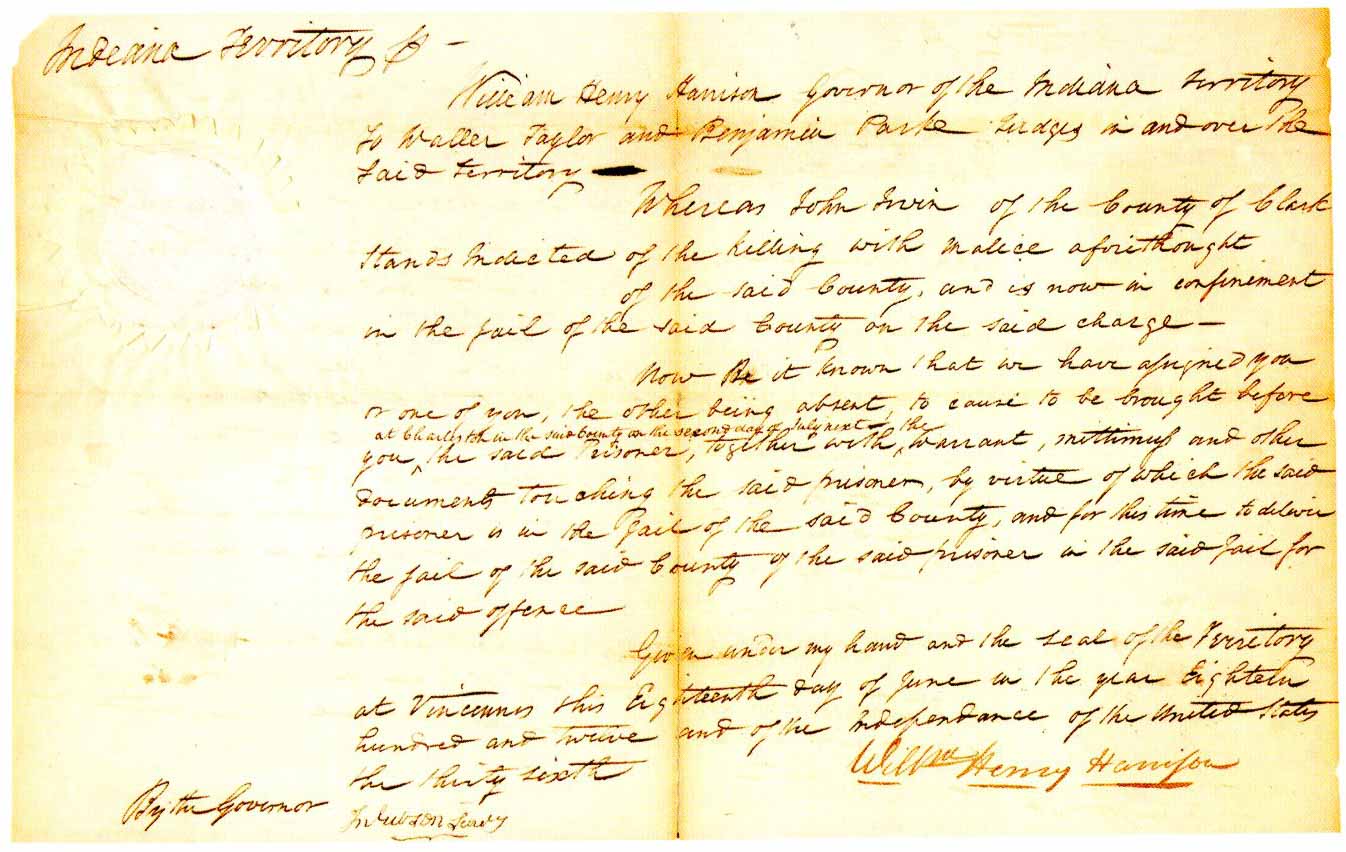 Indiana Territory ss –
William Henry Harrison Governor of the Indiana Territory
To Waller Taylor and Benjamin Parke Judges in and over The
Said Territory
Whereas John Irvin of the County of Clark
Stands Indicted of the killing with malice aforethought
of the said County, and is now in confinement
in the jail of the said County on the said charge –
Now Be it Known that we have assigned you
or one of you, the other being absent, to cause to be brought before
at Charlestown in the said County on the second day of July next the
you ^ the said Prisoner, together with ^ warrant, mittimuss and other
documents touching the said prisoner, by virtue of which the said
prisoner is in the Jail of the said County, and for this time to deliver
the jail of the said County of the said prisoner in the said Jail for
the said offence
Given under my hand and the seal of the Territory
at Vincennes this Eighteenth day of June in the year Eighteen
hundred and twelve and of the Independance of the United States
the thirty sixth
Willm Henry Harrison
By the Governor
Jn Gibson Secy